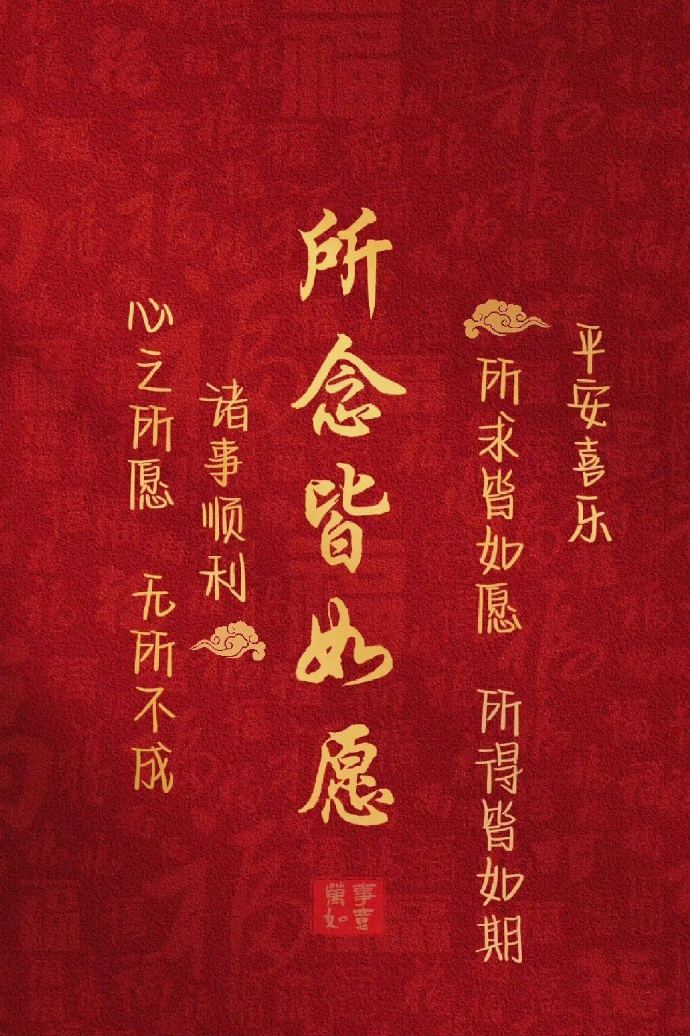 平安喜乐
所求皆如愿 所得皆如期
所念皆如愿
诸事顺利
心之所愿 无所不成
萬事如意